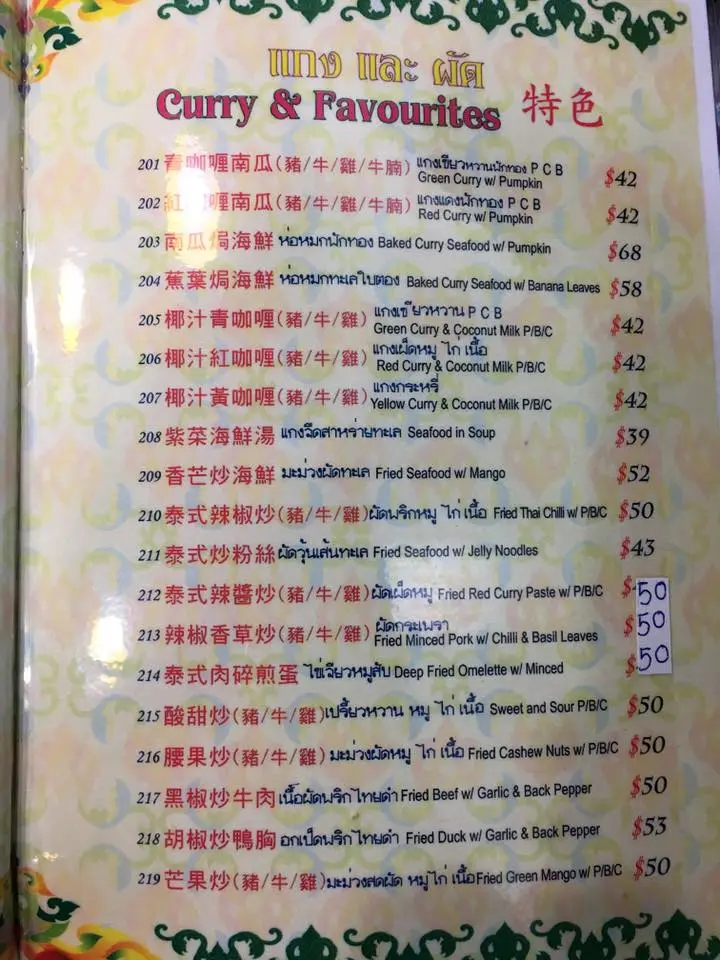 แกง และ ผัด
Curry & Favourites 特色
201 青咖喱南瓜(豬/牛/雞/牛腩) แกงเขียวหวานฟักทอง P C B
Green Curry w/ Pumpkin $42
202 紅咖喱南瓜(豬/牛/雞/牛腩) แกงแดงฟักทอง P C B
Red Curry w/ Pumpkin $42
203 南瓜焗海鮮 ห่อหมกฟักทอง Baked Curry Seafood w/ Pumpkin $68
204 蕉葉焗海鮮 ห่อหมกทะเลใบตอง Baked Curry Seafood w/ Banana Leaves $58
205 椰汁青咖喱(豬/牛/雞) แกงเขียวหวาน P C B
Green Curry & Coconut Milk P/B/C $42
206 椰汁紅咖喱(豬/牛/雞) แกงเผ็ดหมู ไก่ เนื้อ
Red Curry & Coconut Milk P/B/C $42
207 椰汁黃咖喱(豬/牛/雞) แกงกระหรี่
Yellow Curry & Coconut Milk P/B/C $42
208 紫菜海鮮湯 แกงจืดสาหร่ายทะเล Seafood in Soup $39
209 香芒炒海鮮 มะม่วงผัดทะเล Fried Seafood w/ Mango $52
210 泰式辣椒炒(豬/牛/雞) ผัดพริกหมู ไก่ เนื้อ Fried Thai Chilli w/ P/B/C $50
211 泰式炒粉絲 ผัดวุ้นเส้นทะเล Fried Seafood w/ Jelly Noodles $43
212 泰式辣醬炒(豬/牛/雞) ผัดเผ็ดหมู Fried Red Curry Paste w/ P/B/C $50
213 辣椒香草炒(豬/牛/雞) ผัดกระเพรา
Fried Minced Pork w/ Chilli & Basil Leaves $50
214 泰式肉碎煎蛋 ไข่เจียวหมูสับ Deep Fried Omelette w/ Minced $50
215 酸甜炒(豬/牛/雞) เปรี้ยวหวาน หมู ไก่ เนื้อ Sweet and Sour P/B/C $50
216 腰果炒(豬/牛/雞) มะม่วงผัดหมู ไก่ เนื้อ Fried Cashew Nuts w/ P/B/C $50
217 黑椒炒牛肉 เนื้อผัดพริกไทยดำ Fried Beef w/ Garlic & Back Pepper $50
218 胡椒炒鴨胸 อกเป็ดพริกไทยดำ Fried Duck w/ Garlic & Back Pepper $53
219 芒果炒(豬/牛/雞) มะม่วงสดผัด หมู ไก่ เนื้อ Fried Green Mango w/ P/B/C $50